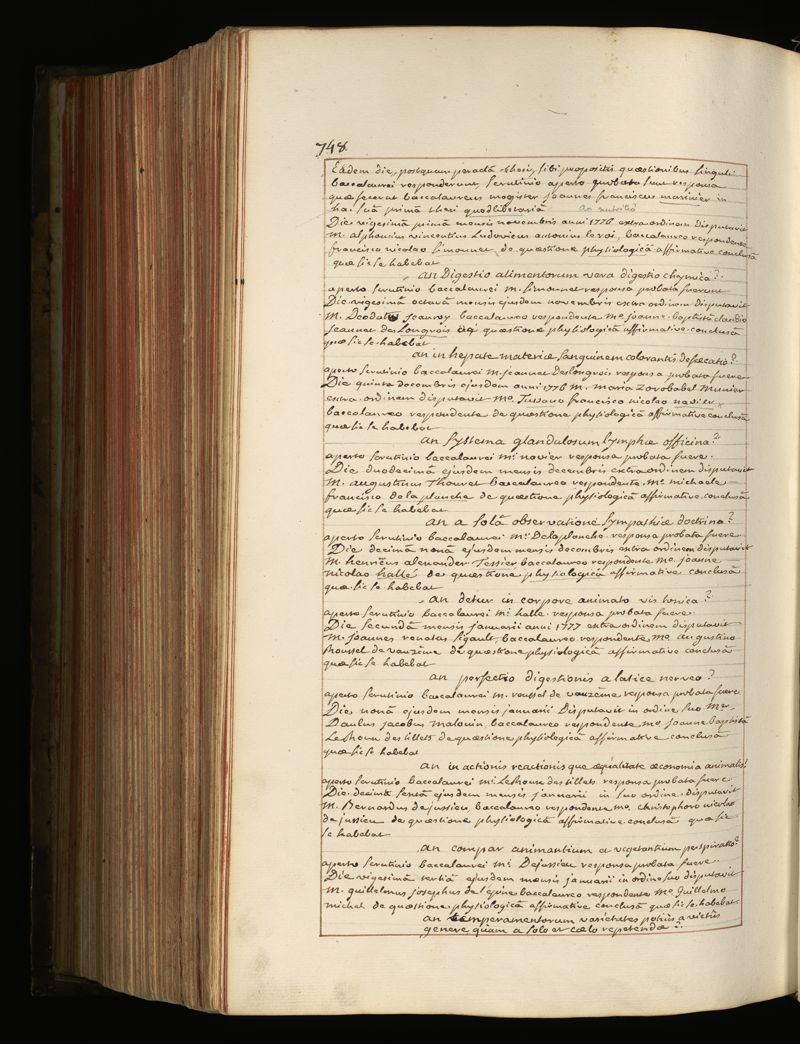 748
Eâdem die, postquam peractâ thesi, sibi propositis quæstionibus singuli
baccalaurei responderunt, scrutinio aperto probata sunt responsa
quæ fecerat baccalaureus magister joannes franciscus marinier in
hac suâ primâ thesi quodlibetariâ an nutritio
Die vigesimâ primâ mensis novembris anni 1776 extra ordinem disputavit
M. alphonsus vincentius Ludovicus antonius le roi, baccalaureo respondente
francisco nicolao Simonnet, de quæstione physiologicâ affirmative conclusâ
quæ sic se habebat
an Digestio alimentorum vera digestio chymica?
aperto scrutinio baccalaurei m. Simonnet responsa probata fuerunt
Die vigesimâ octavâ mensis ejusdem novembris extra ordinem disputavit
M. Deodatus Jeanroy baccalaureo respondente mo. joanne-baptistâ claudio
Jeannet des Longrois de quæstione physiologicâ affirmative conclusâ
quæ sic se habebat
an in hepate materiæ sanguinem colorantis defæcatio?
aperto scrutinio baccalaurei M. Jeannet Deslongrois responsa probata fuere
Die quinta decembris ejusdem anni 1776 M. Maria Zorobabel Munier
extra ordinem disputavit mo. Tussano francisco nicolao navier
baccalaureo respondente de quæstione physiologicâ affirmative conclusâ
quæ sic se habebat
an systema glandulosum lymphæ officina?
aperto scrutinio baccalaurei mi navier responsa probata fuere.
Die duodecimâ ejusdem mensis decembris extra ordinem disputavit
M. augustinus Thouret baccalaureo respondente, mo michaele
francisco de la planche de quæstione physiologicâ affirmative conclusâ
quæ sic se habebat
an a solâ observatione sympathiæ doctrina?
aperto scrutinio baccalaurei mi Delaplanche responsa probata fuere
Die decimâ nonâ ejusdem mensis decembris extra ordinem disputavit
M. henricus alexander Tessier baccalaureo respondente mo. joanne
nicolao hallé de quæstione physiologicâ affirmative conclusâ
quæ sic se habebat
an detur in corpore animato vis tonica?
aperto scrutinio baccalaurei mi hallé responsa probata fuere
Die secundâ mensis januarii anni 1777 extra ordinem disputavit
M. joannes renatus sigault, baccalaureo respondente mo augustino
Roussel de vauzême de quæstione physiologicâ affirmative conclusâ
quæ sic se habebat
an perfectio digestionis a latice nerveo?
aperto scrutinio baccalaurei m. roussel de vauzême responsa probata fuere
Die nonâ ejusdem mensis januarii Disputavit in ordine suo Mer
Paulus jacobus malouin, baccalaureo respondente mo joanne Baptistâ
LeThonu des tillets de quæstione physiologicâ affirmative conclusâ
quæ sic se habebat
an in actionis reactionisque æqualitate œconomia animalis?
aperto scrutinio baccalaurei mi LeThonu des tillets responsa probata fuere
Die decimâ sextâ ejusdem mensis januarii in suo ordine disputavit
M. Bernardus de jussieu, baccalaureo respondente mo christophoro nicolao
de jussieu de quæstione physiologicâ affirmative conclusâ quæ sic
se habebat
an compar animantium et vegetantium perspiratio?
aperto scrutinio baccalaurei mi Dejussieu responsa probata fuere
Die vigesimâ tertiâ ejusdem mensis januarii in ordine suo disputavit
M. guillelmus josephus de l'épine baccalaureo respondente mo guillelmo
michel de quæstione physiologicâ affirmative conclusâ quæ sic se habebat
an temperamentorum varietates potius a victûs
genere quam a solo et cælo repetendæ?